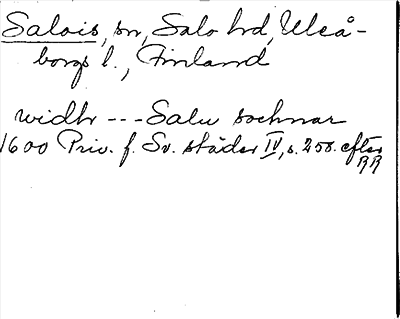 Salois, sn, Salo hd, Uleå-
borgs l., Finland
widh --- Salu sochnar
1600 Priv. f. Sv. städer IV, s. 258. efter
RR